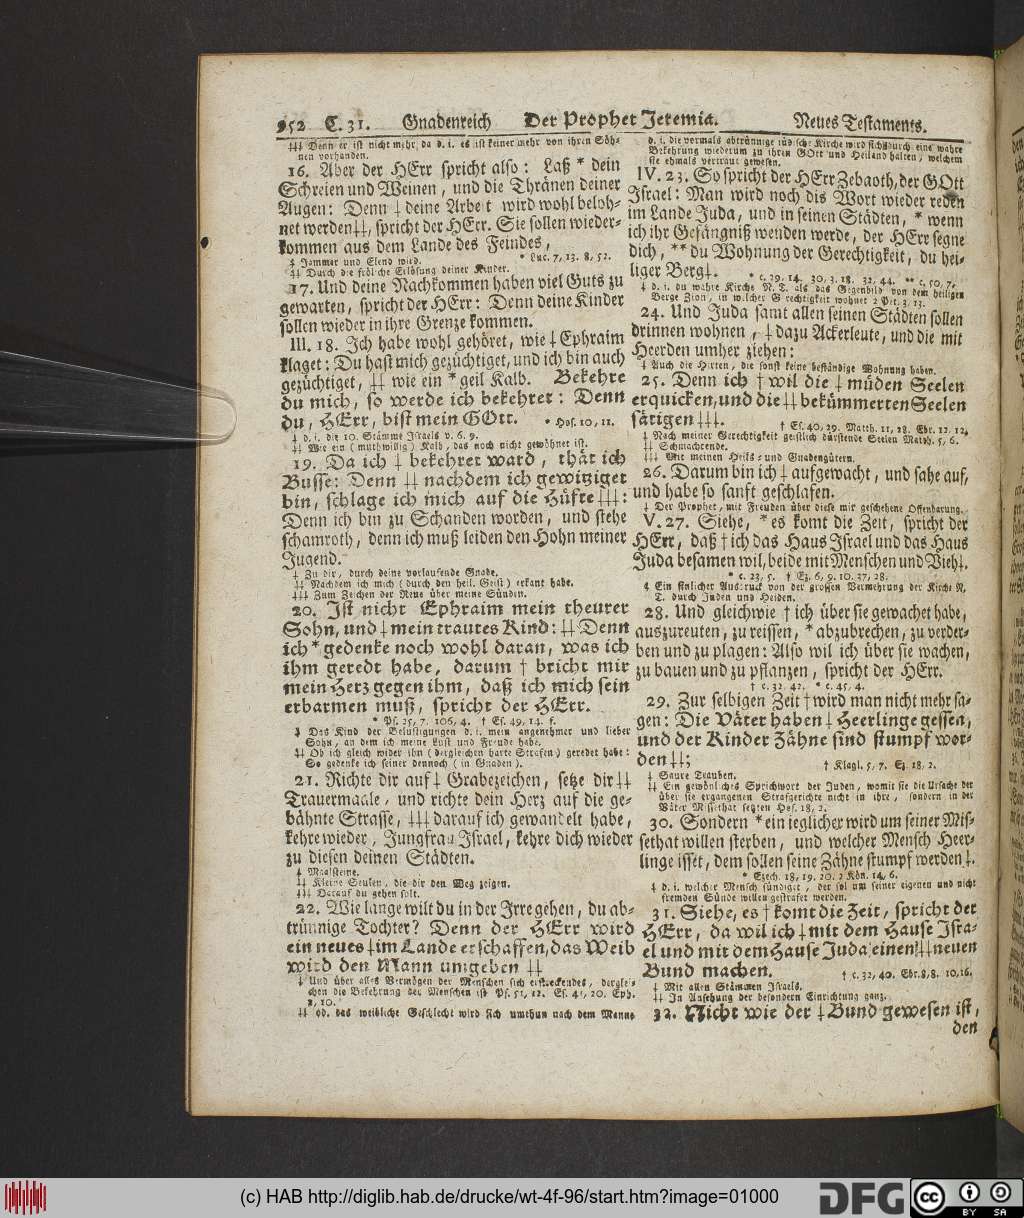 952 C. 31. Gnadenreich Der Prophet Jeremia. Neues Testaments.
‡‡‡ Denn er ist nicht mehr, da d. i. es ist keiner mehr von ihren Söh-
nen vorhanden.
16. Aber der HErr spricht also: Laß * dein
Schreien und Weinen, und die Thränen deiner
Augen: Denn ‡ deine Arbeit wird wohl beloh-
net werden‡‡, spricht der HErr. Sie sollen wieder-
kommen aus dem Lande des Feindes,
* Luc. 7, 13. 8, 52.
‡ Jammer und Elend wird.
‡‡ Durch die fröliche Erlösung deiner Kinder.
17. Und deine Nachkommen haben viel Guts zu
gewarten, spricht der HErr: Denn deine Kinder
sollen wieder in ihre Grenze kommen.
III. 18. Ich habe wohl gehöret, wie ‡ Ephraim
klaget: Du hast mich gezüchtiget, und ich bin auch
gezüchtiget, ‡‡ wie ein * geil Kalb. Bekehre
du mich, so werde ich bekehret: Denn
du, HErr, bist mein GOtt. * Hos. 10, 11.
‡ d. i. die 10. Stämme Israels v. 6. 9.
‡‡ Wie ein (muthwillig) Kalb, das noch nicht gewöhnet ist.
19. Da ich ‡ bekehret ward, thät ich
Busse: Denn ‡‡ nachdem ich gewitziget
bin, schlage ich mich auf die Hüfte ‡‡‡:
Denn ich bin zu Schanden worden, und stehe
schamroth, denn ich muß leiden den Hohn meiner
Jugend.
‡ Zu dir, durch deine vorlaufende Gnade.
‡‡ Nachdem ich mich (durch den heil. Geist) erkant habe.
‡‡‡ Zum Zeichen der Reue über meine Sünden.
20. Ist nicht Ephraim mein theurer
Sohn, und ‡ mein trautes Kind: ‡‡ Denn
ich * gedenke noch wohl daran, was ich
ihm geredt habe, darum † bricht mir
mein Herz gegen ihm, daß ich mich sein
erbarmen muß, spricht der HErr.
* Ps. 25, 7. 106, 4. † Es. 49, 14. f.
‡ Das Kind der Belustigungen d. i. mein angenehmer und lieber
Sohn, an dem ich meine Lust und Freude habe.
‡‡ Ob ich gleich wider ihn (dergleichen harte Strafen) geredet habe:
So gedenke ich seiner dennoch (in Gnaden).
21. Richte dir auf ‡ Grabezeichen, setze dir ‡‡
Trauermaale, und richte dein Herz auf die ge-
bähnte Strasse, ‡‡‡ darauf ich gewandelt habe,
kehre wieder, Jungfrau Israel, kehre dich wieder
zu diesen deinen Städten.
‡ Maalsteine.
‡‡ Kleine Seulen, die dir den Weg zeigen.
‡‡‡ Darauf du gehen solt.
22. Wie lange wilt du in der Irre gehen, du ab-
trünnige Tochter? Denn der HErr wird
ein neues ‡ im Lande erschaffen, das Weib
wird den Mann umgeben ‡‡
‡ Und über alles Vermögen der Menschen sich erstreckendes, derglei-
chen die Bekehrung der Menschen ist Ps. 51, 12. Es. 41, 20. Eph.
2, 10.
‡‡ od. das weibliche Geschlecht wird sich umthun nach dem Manne
d. i. die vormals abtrünnige jüdische Kirche wird sich durch eine wahre
Bekehrung wiederum zu ihren GOtt und Heiland halten, welchem
sie ehmals vertraut gewesen.
IV. 23. So spricht der HErr Zebaoth, der GOtt
Israel: Man wird noch dis Wort wieder reden
im Lande Juda, und in seinen Städten, * wenn
ich ihr Gefängniß wenden werde, der HErr segne
dich, ** du Wohnung der Gerechtigkeit, du hei-
liger Berg‡. * c. 29, 14. 30, 3. 18. 32, 44. ** c. 50, 7.
‡ d. i. du wahre Kirche N. T. als das Gegenbild von dem heiligen
Berge Zion, in welcher Gerechtigkeit wohnet 2 Pet. 3, 13.
24. Und Juda samt allen seinen Städten sollen
drinnen wohnen, ‡ dazu Ackerleute, und die mit
Heerden umher ziehen:
‡ Auch die Hirten, die sonst keine beständige Wohnung haben.
25. Denn ich † wil die ‡ müden Seelen
erquicken, und die ‡‡ bekümmerten Seelen
sättigen ‡‡‡. † Es. 40, 29. Matth. 11, 28. Ebr. 12, 12.
‡ Nach meiner Gerechtigkeit geistlich dürstende Seelen Matth. 5, 6.
‡‡ Schmachtende.
‡‡‡ Mit meinen Heils- und Gnadengütern.
26. Darum bin ich ‡ aufgewacht, und sahe auf,
und habe so sanft geschlafen.
‡ Der Prophet, mit Freuden über diese mir geschehene Offenbarung.
V. 27. Siehe, * es komt die Zeit, spricht der
HErr, daß † ich das Haus Israel und das Haus
Juda besamen wil, beide mit Menschen und Vieh‡.
* c. 23, 5. † Ez. 6, 9. 10. 27, 28.
‡ Ein sinlicher Ausdruck von der grossen Vermehrung der Kirche N.
T. durch Juden und Heiden.
28. Und gleichwie † ich über sie gewachet habe,
auszureuten, zu reissen, * abzubrechen, zu verder-
ben und zu plagen: Also wil ich über sie wachen,
zu bauen und zu pflanzen, spricht der HErr.
† c. 32, 42. * c. 45, 4.
29. Zur selbigen Zeit † wird man nicht mehr sa-
gen: Die Väter haben ‡ Heerlinge gessen,
und der Kinder Zähne sind stumpf wor-
den ‡‡; † Klagl. 5, 7. Ez. 18, 2.
‡ Saure Trauben.
‡‡ Ein gewöhnliches Sprichwort der Juden, womit sie die Ursache der
über sie ergangenen Strafgerichte nicht in ihre, sondern in der
Väter Missethat setzten Hes. 18, 2.
30. Sondern * ein ieglicher wird um seiner Mis-
sethat willen sterben, und welcher Mensch Heer-
linge isset, dem sollen seine Zähne stumpf werden ‡.
* Ezech. 18, 19. 20. 2 Kön. 14, 6.
‡ d. i. welcher Mensch sündiget, der sol um seiner eigenen und nicht
fremden Sünde willen gestrafet werden.
31. Siehe, es † komt die Zeit, spricht der
HErr, da wil ich ‡ mit dem Hause Isra-
el und mit dem Hause Juda einen ‡‡ neuen
Bund machen. † c. 32, 40. Ebr. 8, 8. 10, 16.
‡ Mit allen Stämmen Israels.
‡‡ In Ansehung der besondern Einrichtung ganz.
32. Nicht wie der ‡ Bund gewesen ist,
den
(c) HAB http://diglib.hab.de/drucke/wt-4f-96/start.htm?image=01000
DFG
cc BY SA